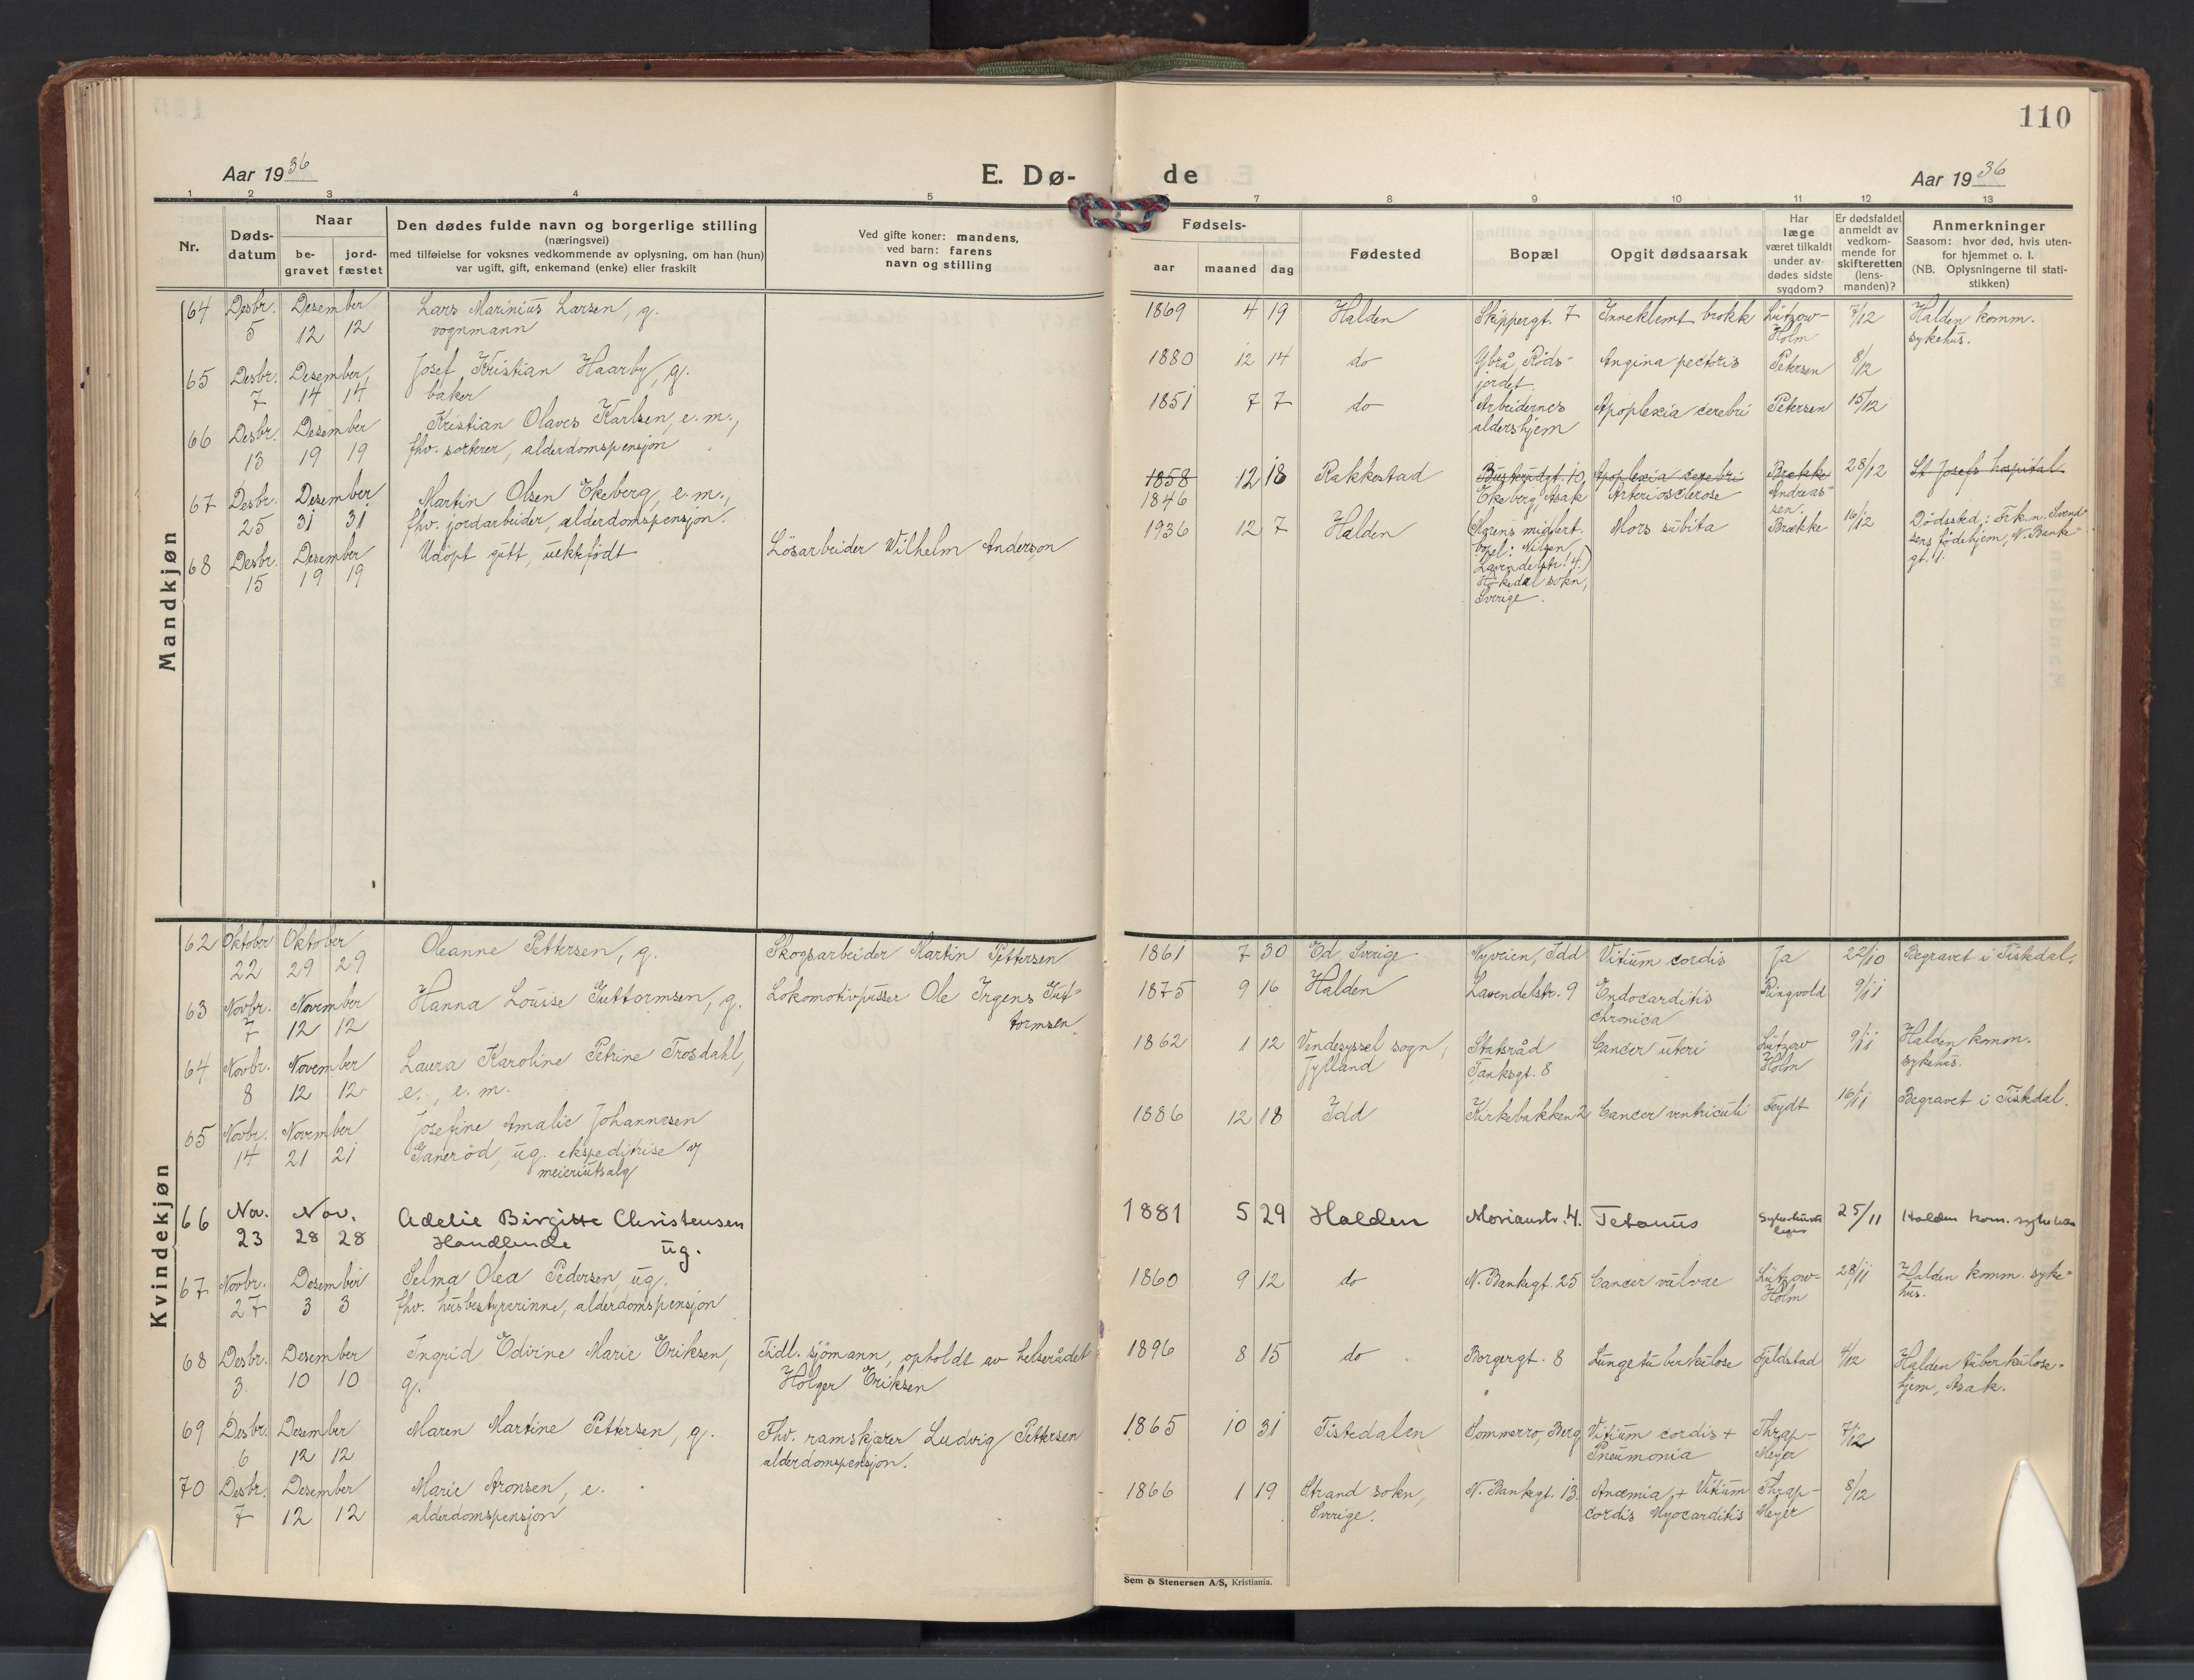 110
Aar 1936
E. Dø-
de
Aar 1936
1 2 3 4 5 7 8 9 10 11 12 13
Nr.
Døds-
datum
Naar
be-
gravet
jord-
fæstet
Den dødes fulde navn og borgerlige stilling
(næringsvei)
med tilføielse for voksnes vedkommende av oplysning, om han (hun)
var ugift, gift, enkemand (enke) eller fraskilt
Ved gifte koner: mandens,
ved barn: farens
navn og stilling
Fødsels-
aar maaned dag
Fødested
Bopæl
Opgit dødsaarsak
Har
læge
været tilkaldt
under av-
dødes sidste
sygdom?
Er dødsfaldet
anmeldt av
vedkom-
mende for
skifteretten
(lens-
manden)?
Anmerkninger
Saasom: hvor død, hvis uten-
for hjemmet o. l.
(NB. Oplysningerne til stati-
stikken)
Mandkjøn
64 Desbr. Desember Lars Marinius Larsen, g. 1869 4 19 Halden Skippergt. 7 Inneklemt brokk Lützow- 7/12 Halden komm.
5 12 12 vognmann Holm sykehus.
65 Desbr. Desember Josef Kristian Haarby, g. 1880 12 14 do Ybrå, Røds- Angina pectoris Petersen 8/12
7 14 14 baker jordet
66 Desbr. Desember Kristian Olaves Karlsen, e.m., 1851 7 7 do Arbeidernes Apoplexia cerebri Petersen 15/12
13 19 19 fhv. sorterer, alderdomspensjon aldershjem
67 Desbr. Desember Martin Olsen Ekeberg, e.m., 1858 12 18 Rakkestad Busterudgt. 10, Apoplexia cerebri Brække 28/12 St Josefs hospital
25 31 31 fhv. jordarbeider, alderdomspensjon. 1846 Ekeberg, Asak Arteriosclerose Andreas-
sen.
68 Desbr. Desember Udøpt gutt, uekkfødt Løsarbeider Wilhelm Anderson 1936 12 7 Halden (Morens midlert. Mors subita Brække 16/12 Dødssted: Frk. n. Svend-
15 19 19 bopel: Nilsen, sens fødehjem, N. Banke-
Lavendelstr. 4.) gt. 1.
Høkedal sokn,
Sverige.
Kvindekjøn
62 Oktober Oktober Oleanne Pettersen, g. Skogsarbeider Martin Pettersen 1861 7 30 Ed, Sverige Nyveien, Idd Vitium cordis Ja 22/10 Begravet i Tistedal.
22 29 29
63 Novbr. November Hanna Louise Guttormsen, g. Lokomotivpusser Ole Irgens Gut- 1875 9 16 Halden Lavendelstr. 9 Endocarditis Ringvold 9/11
7 12 12 tormsen chronica
64 Novbr. November Laura Karoline Petrine Trosdahl, 1862 1 12 Vendesyssel sogn, Statsråd Cancer uteri Lützow 9/11 Halden komm.
8 12 12 e., e.m. Jylland Tanksgt. 8 Holm sykehus.
65 Novbr. November Josefine Amalie Johannesen 1886 12 18 Idd Kirkebakken 2 Cancer ventriculi Feydt 16/11 Begravet i Tistedal.
14 21 21 Ganerød, ug. ekspeditrise v/
meieriutsalg
66 Nov. Nov. Adelie Birgitte Christensen 1881 5 29 Halden Morianstr. 4. Tetanus Sykehusets 25/11 Halden kom. sykehus
23 28 28 Handlende ug. leger
67 Novbr. Desember Selma Olea Pedersen, ug. 1860 9 12 do N. Bankegt. 25 Cancer vulvae Lützow- 28/11 Halden komm. syke-
27 3 3 fhv. husbestyrerinne, alderdomspensjon Holm hus.
68 Desbr. Desember Ingrid Edvine Marie Eriksen, Tidl. sjømann, opholdt av helserådet 1896 8 15 do Borgergt. 8 Lungetuberkulose Fjeldstad 4/12 Halden tuberkulose-
3 10 10 g. Holger Eriksen hjem, Asak.
69 Desbr. Desember Maren Martine Pettersen, g. Fhv. ramskjærer Ludvig Pettersen 1865 10 31 Tistedalen Sommerro, Berg Vitium cordis + Thrap- 7/12
6 12 12 alderdomspensjon. Pneumonia Meyer
70 Desbr. Desember Marie Aronsen, e. 1866 1 19 Strand sokn, N. Bankegt. 13 Anæmia + Vitium Thrap- 8/12
7 12 12 alderdomspensjon Sverige. cordis Myocarditis Meyer
Sem & Stenersen A/S, Kristiania.